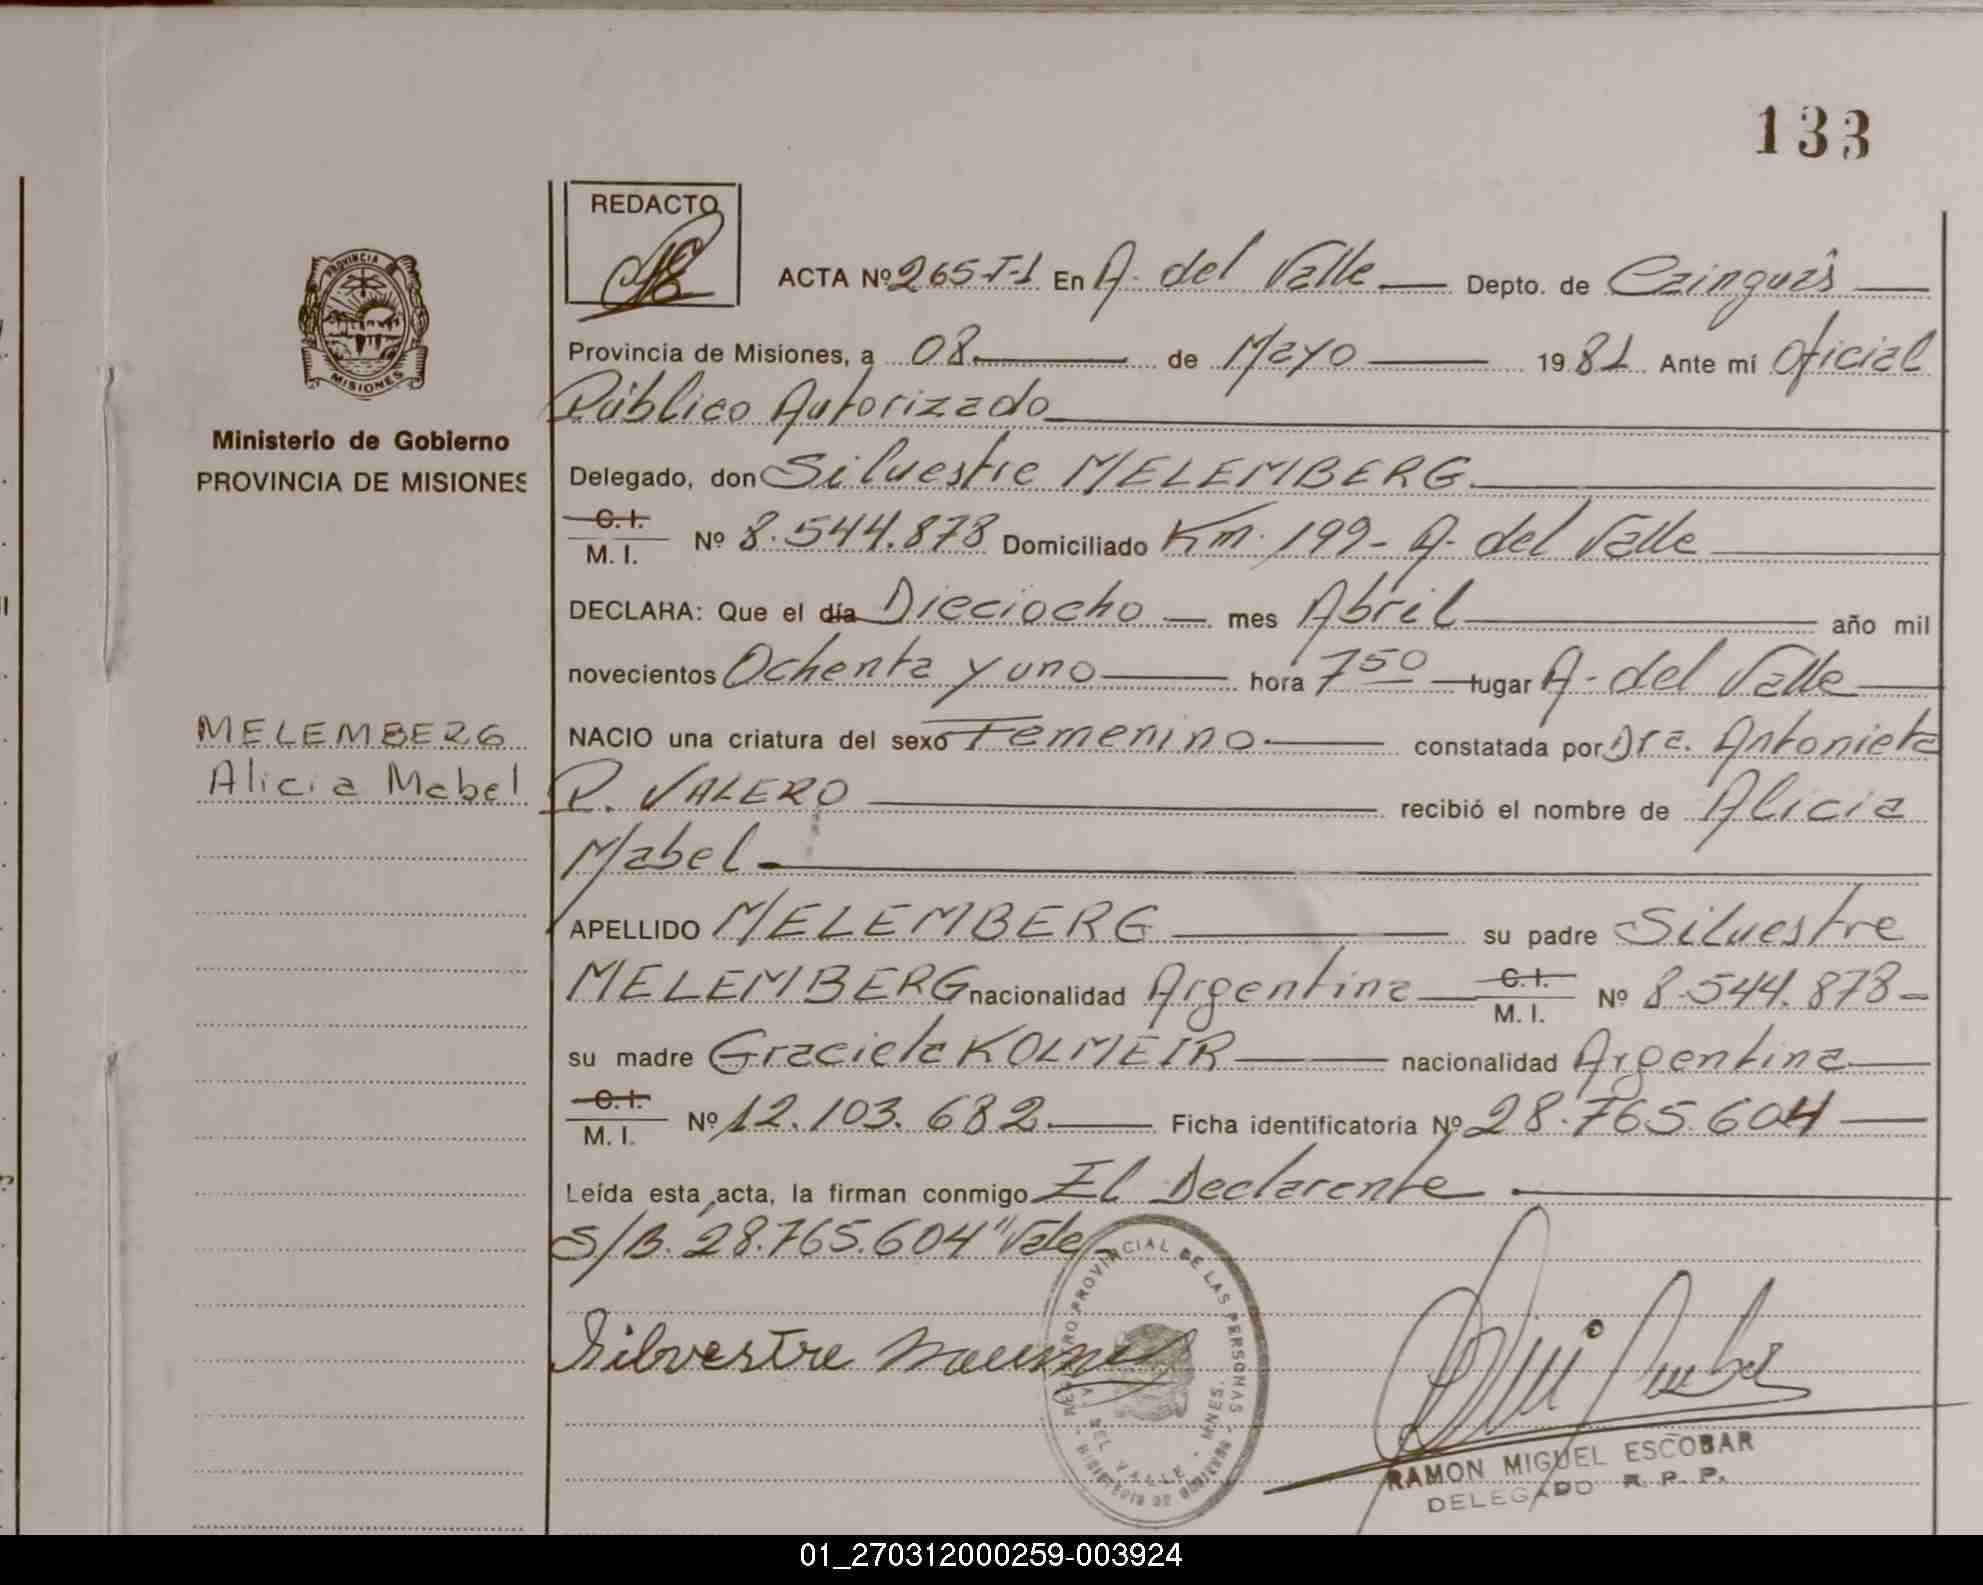 133
REDACTO
PROVINCIA
MISIONES
Ministerio de Gobierno
PROVINCIA DE MISIONES
MELEMBERG
Alicia Mabel
ACTA Nº 265-T-1 En A. del Valle Depto. de Cainguás
Provincia de Misiones, a 08 de Mayo 1981 Ante mí Oficial
Público Autorizado
Delegado, don Silvestre MELEMBERG
C.I. M.I. Nº 8.544.878 Domiciliado Km. 199- A. del Valle
DECLARA: Que el día Dieciocho mes Abril año mil
novecientos Ochenta y uno hora 7 50 lugar A. del Valle
NACIO una criatura del sexo Femenino constatada por Dra. Antonieta
P. VALERO recibió el nombre de Alicia
Mabel
APELLIDO MELEMBERG su padre Silvestre
MELEMBERG nacionalidad Argentina C.I. M.I. Nº 8.544.878
su madre Graciela KOLMEIR nacionalidad Argentina
C.I. M.I. Nº 12.103.682 Ficha identificatoria Nº 28.765.604
Leída esta acta, la firman conmigo El Declarente
S/B. "28.765.604" Vale
Silvestre
REGISTRO PROVINCIAL DE LAS PERSONAS
A. DEL VALLE - MNES.
MINISTERIO DE GOBIERNO
RAMON MIGUEL ESCOBAR
DELEGADO R. P. P.
01_270312000259-003924